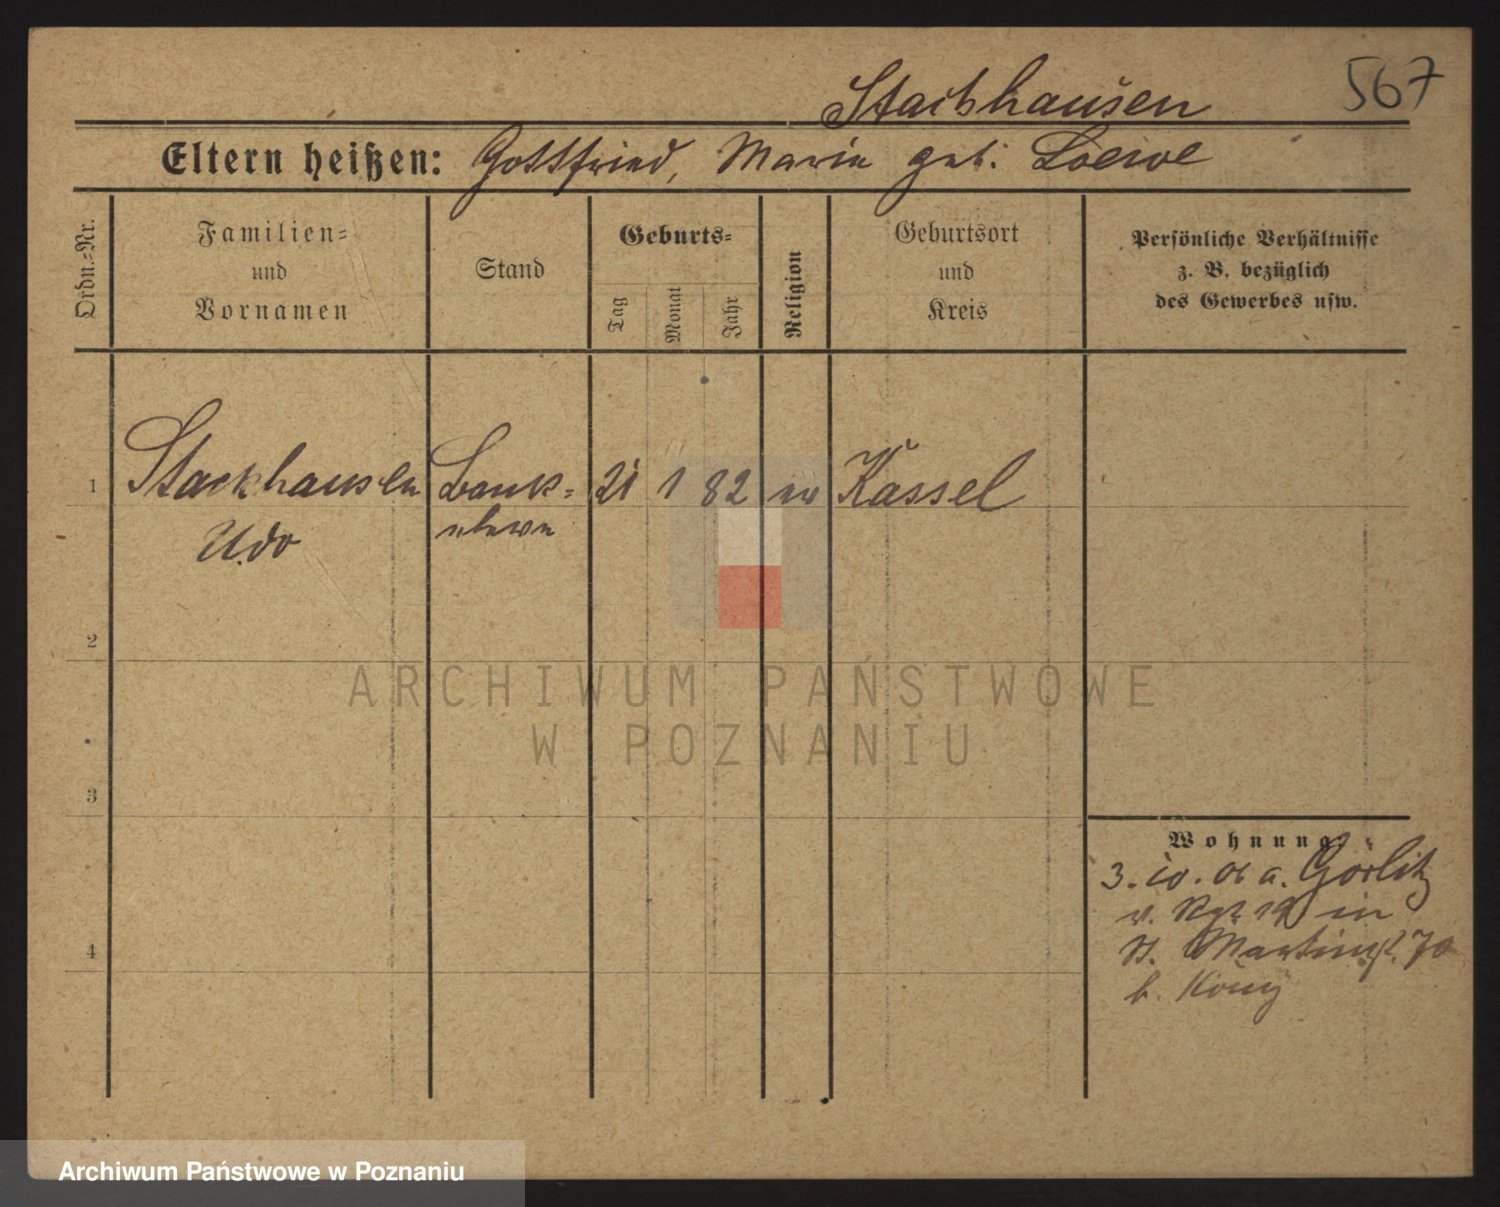 567
Stackhausen
Eltern heißen: Gottfried, Marie geb. Loewe
Ordn.-Nr.
Familien-
und
Vornamen
Stand
Geburts-
Tag
Monat
Jahr
Religion
Geburtsort
und
Kreis
Persönliche Verhältnisse
z. B. bezüglich
des Gewerbes usw.
1 Stackhausen Bank- 21 1 82 ev Kassel
Udo
2
3
4
Wohnung:
3. 10. 06 a. Görlitz
in
St. Martinst. 70
b. König
ARCHIWUM PAŃSTWOWE
W POZNANIU
Archiwum Państwowe w Poznaniu